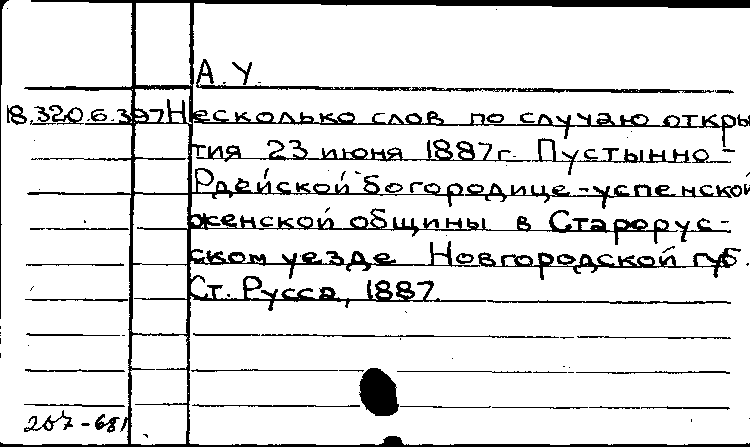 А. У.
18.320.6.397 Несколько слов по случаю откры
тия 23 июня 1887г. Пустынно-
Рдейской богородице-успенской
женской общины в Старорус-
ском уезде Новгородской губ.
Ст. Русса, 1887.
267-681